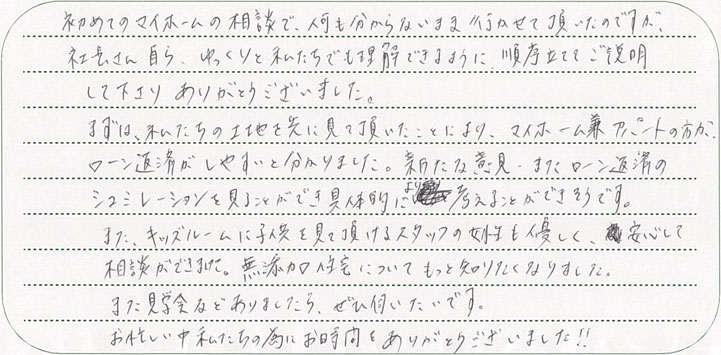 初めてのマイホームの相談で、何も分からないまま行かせて頂いたのですが、
社長さん自ら、ゆっくりと私たちでも理解できるように順序立ててご説明
して下さり ありがとうございました。
まずは、私たちの土地を先に見て頂いたことにより、マイホーム兼アパートの方が、
ローン返済がしやすいと分かりました。新たな意見、またローン返済の
シュミレーションを見ることができ具体的により考えることができそうです。
また、キッズルームに子供を見て頂けるスタッフの女性も優しく、安心して
相談ができました。無添加住宅についてもっと知りたくなりました。
また見学会などありましたら、ぜひ伺いたいです。
お忙しい中私たちの為にお時間をありがとうございました!!